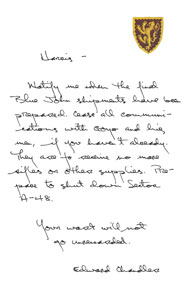 Norris -
Notify me when the final
Blue John shipments have been
prepared. Cease all communi-
cations with Coyo and his
men, if you haven't already.
They are to receive no more
rifles or other supplies. Pre-
pare to shut down Sector
A-48.
Your work will not
go unrewarded.
Edward Chandler